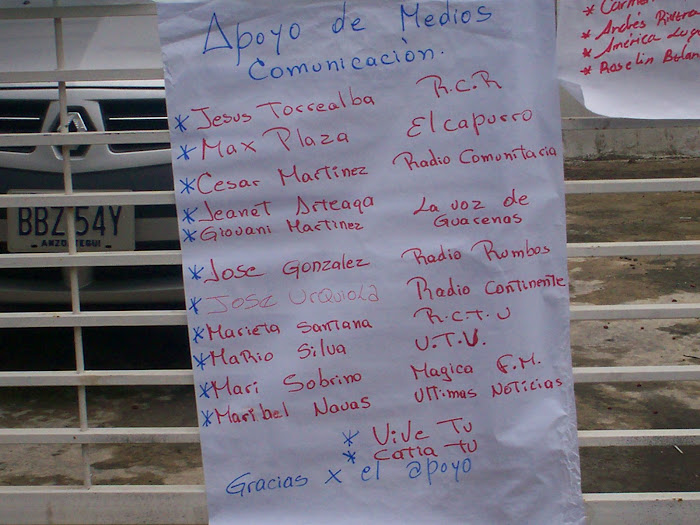 Apoyo de Medios
Comunicación.
* Jesus Torrealba R.C.R
* Max Plaza El capurro
* Cesar Martinez Radio Comunitaria
* Jeanet Arteaga La voz de
* Giovani Martinez Guarenas
* Jose Gonzalez Radio Rumbos
* Jose Urquiola Radio Continente
* Marieta Santana R.C.T.U
* Mario Silva U.T.V.
* Mari Sobrino Magica F.M.
* Maribel Navas Ultimas Noticias
* Vive Tv
* Catia tv
Gracias x el @poyo
* Andrés Rivera
* América Lug
* Roselin Bolan
BBZ 54Y
ANZOATEGUI